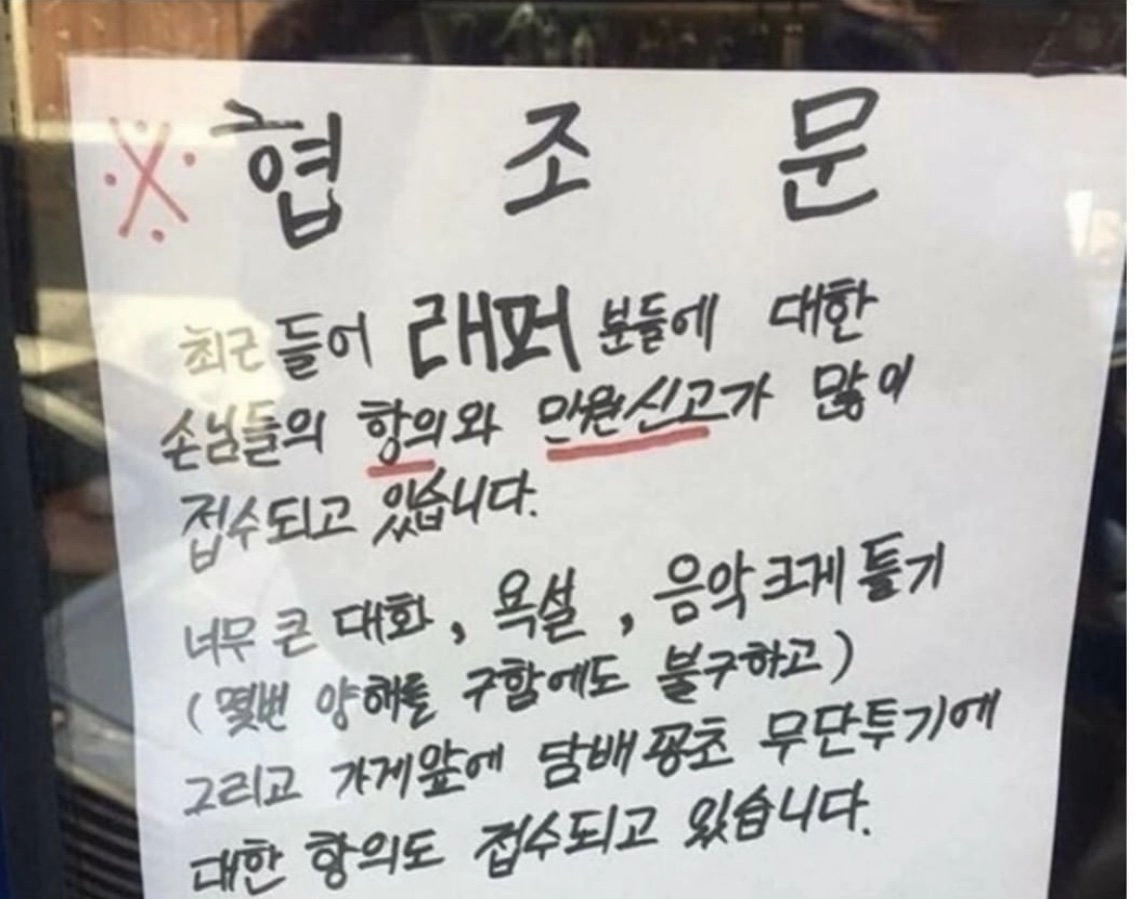 ※ 협 조 문
최근 들어 래퍼 분들에 대한
손님들의 항의와 민원신고가 많이
접수되고 있습니다.
너무 큰 대화, 욕설, 음악크게 틀기
(몇번 양해를 구함에도 불구하고)
그리고 가게앞에 담배꽁초 무단투기에
대한 항의도 접수되고 있습니다.